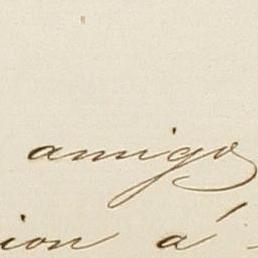 amigo
ion á